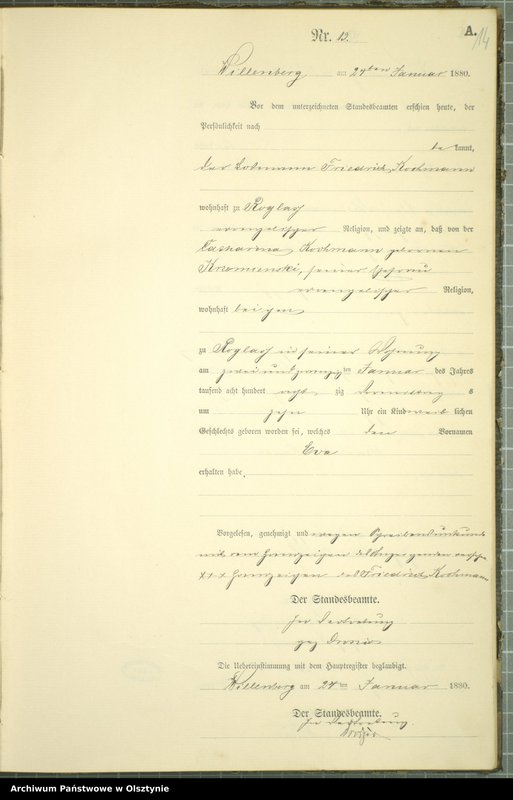 A.
14
Nr. 12.
Willenberg am 24ten Januar 1880.
Vor dem unterzeichneten Standesbeamten erschien heute, der
Persönlichkeit nach
be kannt,
der Friedrich Kochmann
wohnhaft zu Roglas
evangelischer Religion, und zeigte an, daß von der
Catharina Kochmann gebornen
seiner Ehefrau
evangelischer Religion,
wohnhaft bei ihm
zu Roglas in seiner Wohnung
am zwei und zwanzigsten Januar des Jahres
tausend acht hundert acht zig s
um zehn Uhr ein Kind weib lichen
Geschlechts geboren worden sei, welches den Vornamen
Eva
erhalten habe.
Vorgelesen, genehmigt und wegen Schreibensunkunde
mit dem Handzeichen des Anzeigenden versehen
XXX Handzeichen des Friedrich Kochmann
Der Standesbeamte.
In Vertretung
gez
Die Uebereinstimmung mit dem Hauptregister beglaubigt.
Willenberg am 24ten Januar 1880.
Der Standesbeamte.
In Vertretung.
Archiwum Państwowe w Olsztynie